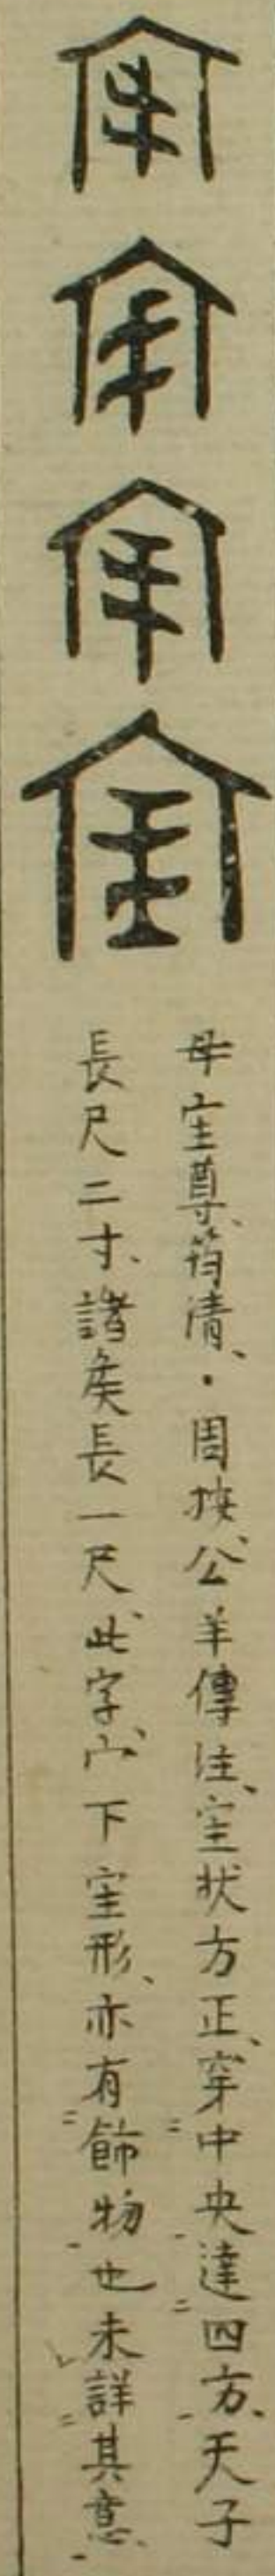 母宔尊、筠清、・周按、公羊傳注、宔状方正、穿中央達四方、天子
長尺二寸、諸矦長一尺、此字、宀、下宔形、亦有飾物也未詳其意、